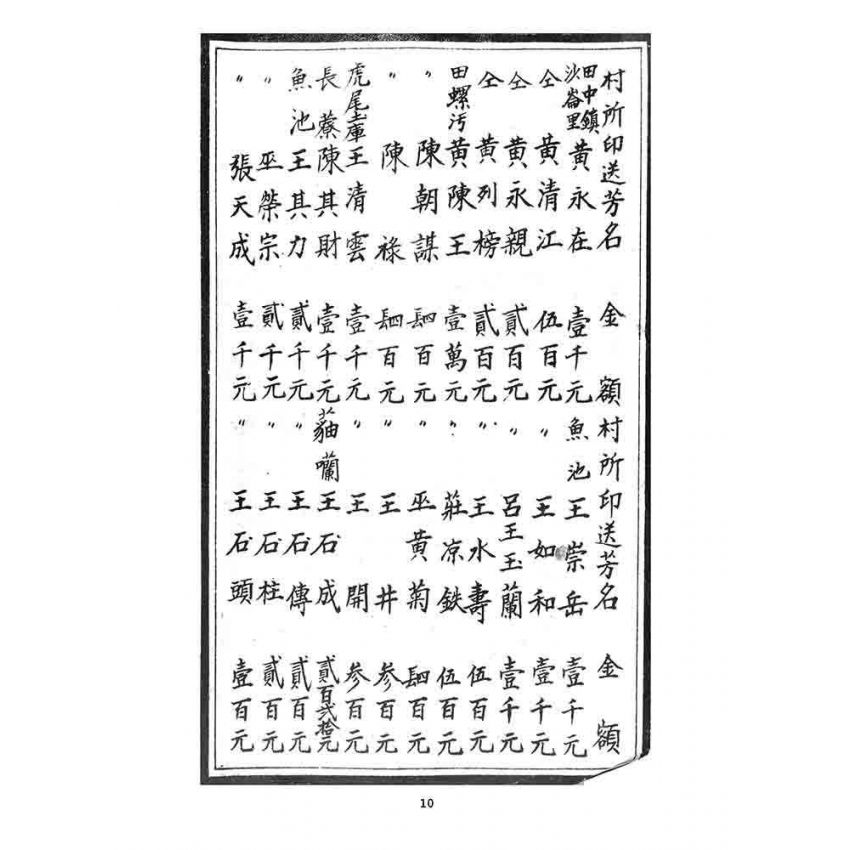 村所印送芳名 金額
田中鎮沙崙里 黃永在 壹千元
仝 黃清江 伍百元
仝 黃永親 貳百元
仝 黃列榜 貳百元
田螺汚 黃陳王 壹萬元
〃 陳朝謀 肆百元
〃 陳祿 肆百元
虎尾土庫 王清雲 壹千元
長藔 陳其財 壹千元
魚池 王其力 貳千元
〃 巫榮宗 貳千元
〃 張天成 壹千元
村所印送芳名 金額
魚池 王崇岳 壹千元
〃 王如和 壹千元
〃 呂王玉蘭 壹千元
〃 王水壽 伍百元
〃 莊凉鉄 伍百元
〃 巫黃菊 肆百元
〃 王井 参百元
〃 王開 参百元
貓囒 王石成 貳百弍拾元
〃 王石傳 貳百元
〃 王石柱 貳百元
〃 王石頭 壹百元
10